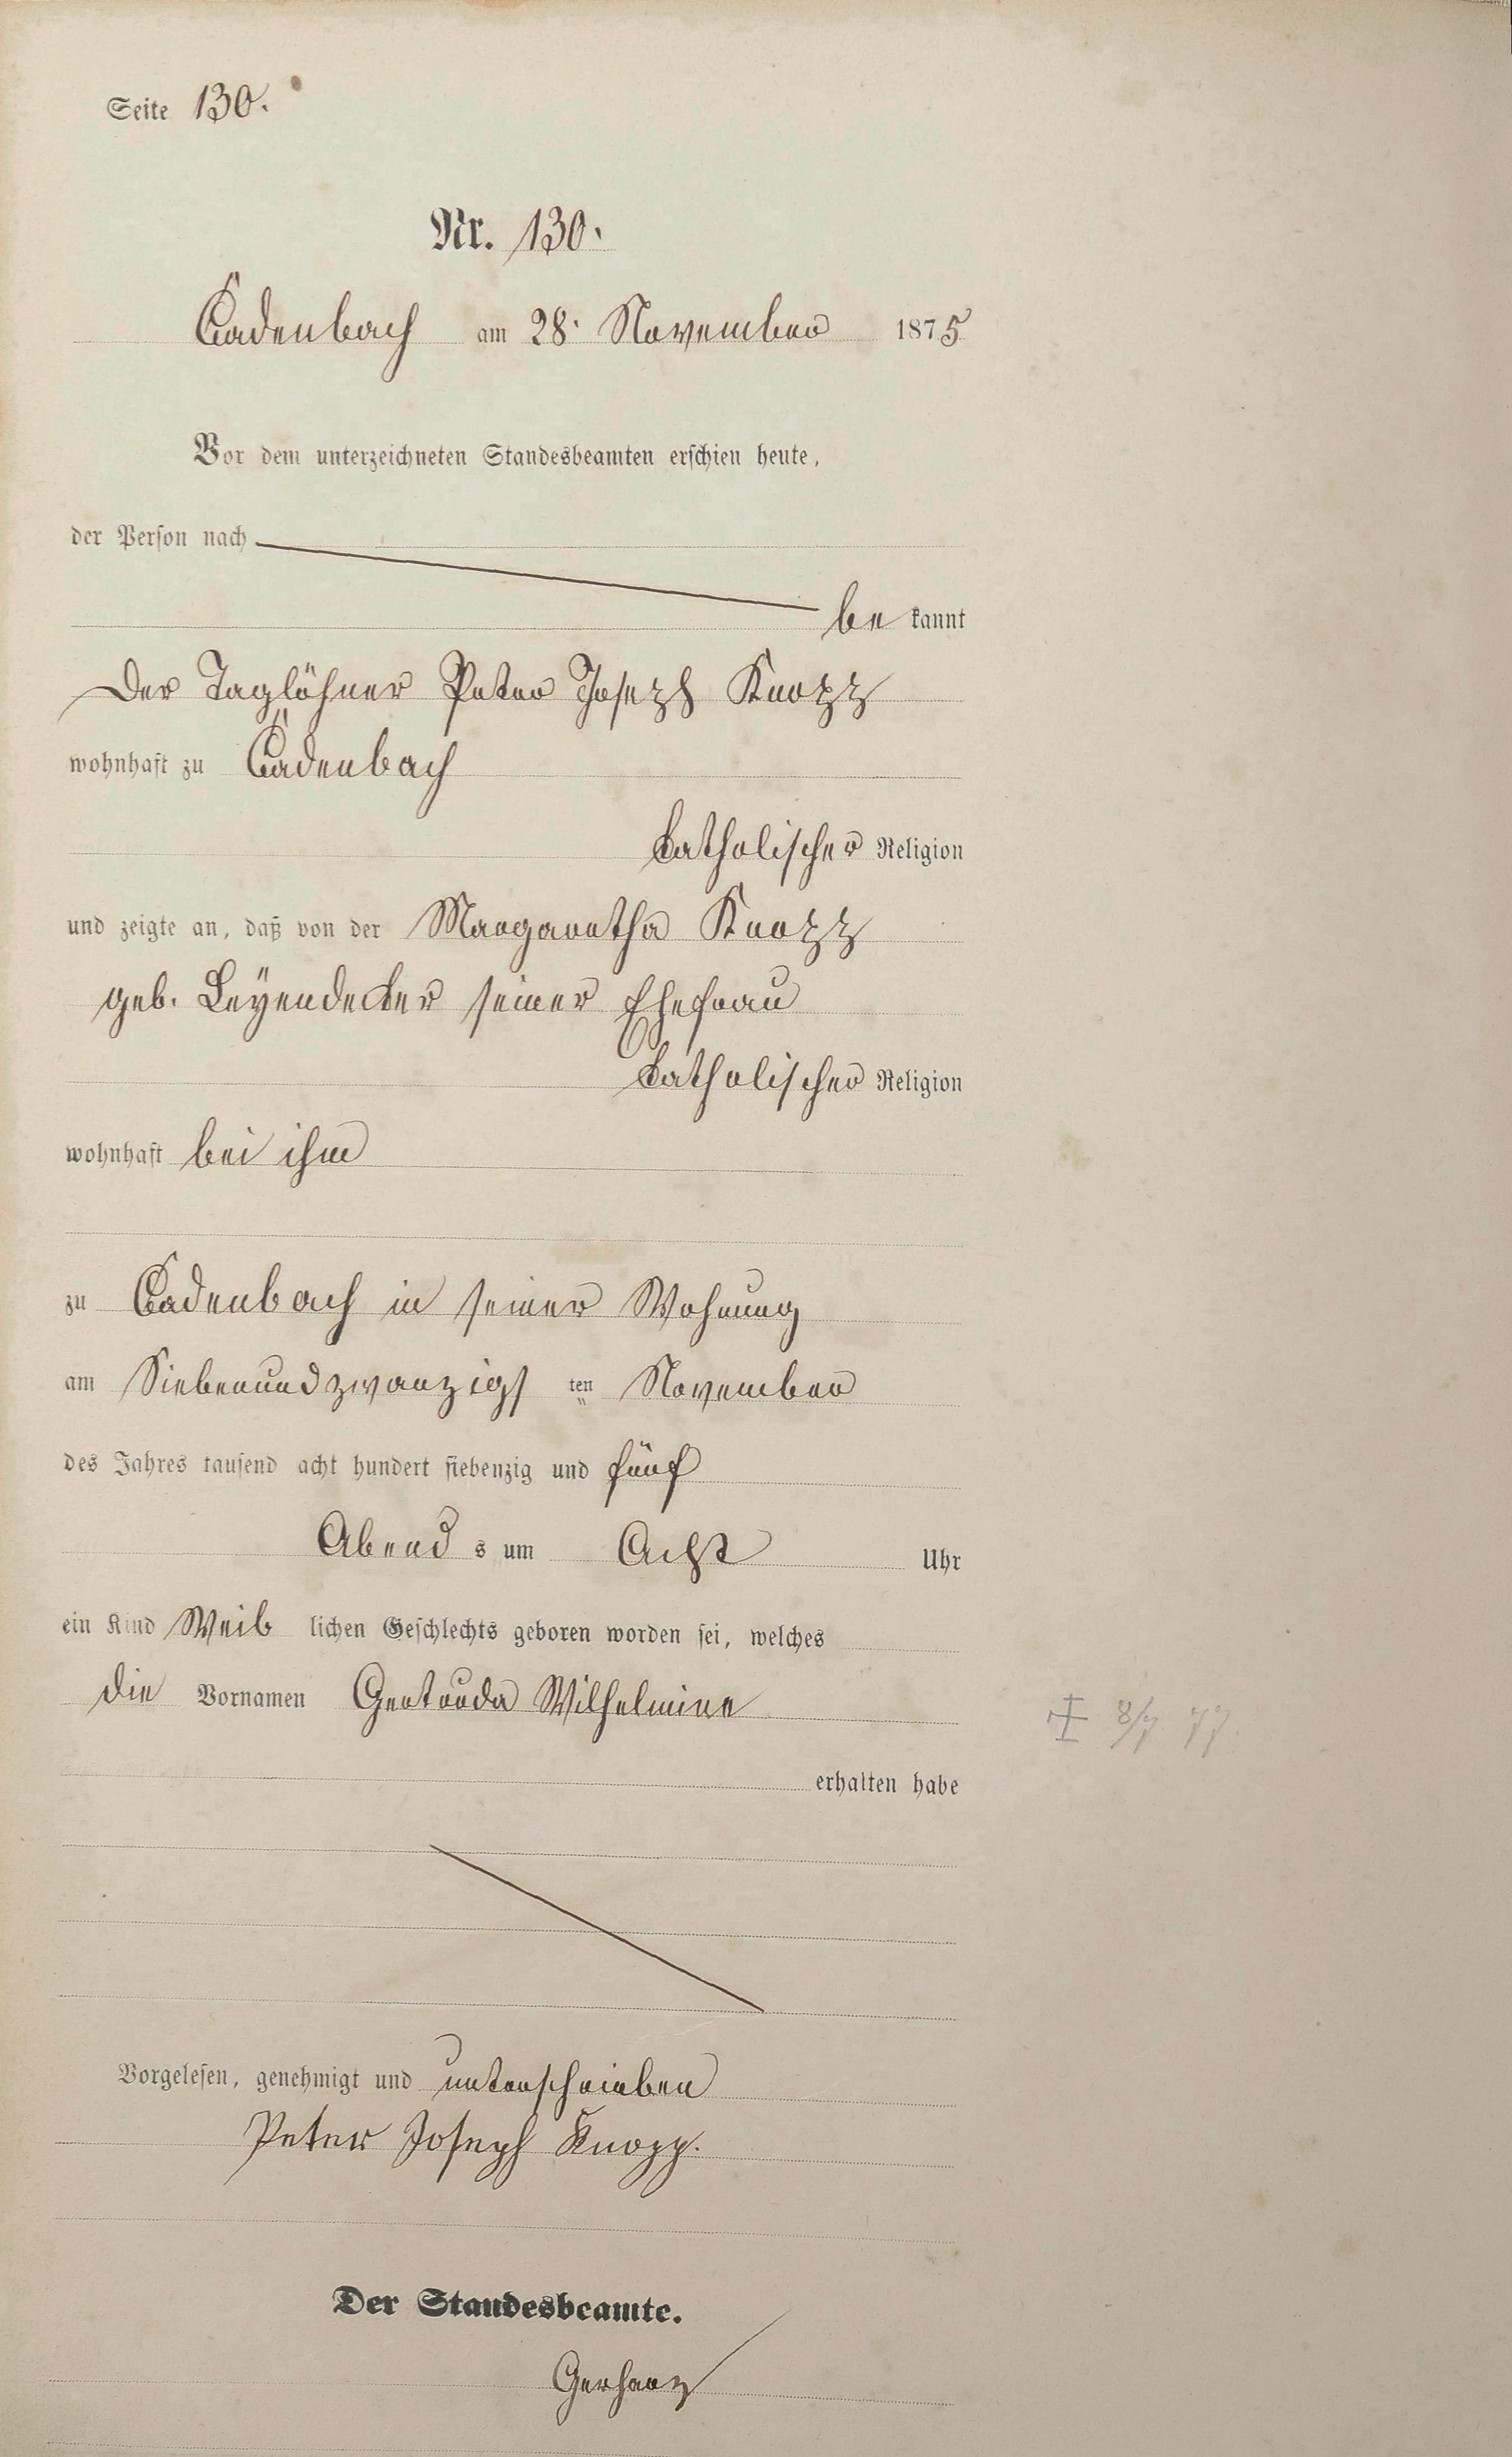 Seite 130.
Nr. 130.
Cadenbach am 28. November 1875
Vor dem unterzeichneten Standesbeamten erschien heute,
der Person nach
be kannt
Der Taglöhner Peter Joseph Knopp
wohnhaft zu Cadenbach
katholischer Religion
und zeigte an, daß von der Margaretha Knopp
geb. Leÿendecker seiner Ehefrau
katholischer Religion
wohnhaft bei ihm
zu Cadenbach in seiner Wohnung
am Siebenundzwanzigs ten November
des Jahres tausend acht hundert siebenzig und fünf
Abend s um Acht Uhr
ein Kind Weib lichen Geschlechts geboren worden sei, welches
die Vornamen Gertruda Wilhelmine
+ 8/7 77.
erhalten habe
Vorgelesen, genehmigt und unterschrieben
Peter Joseph Knopp.
Der Standesbeamte.
Gerharz